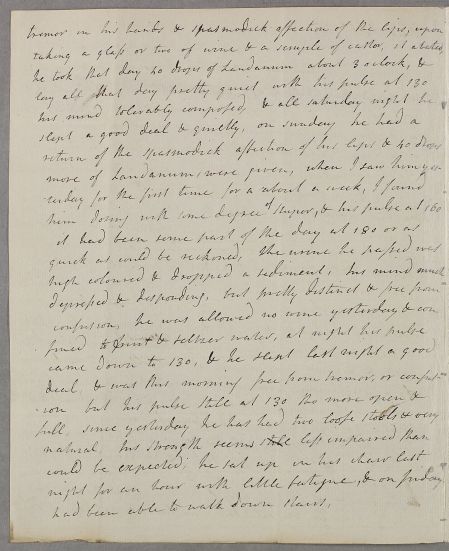 tremor in his hands & spasmodick affection of the lips, upon
taking a glass or two of wine & a scruple of castor, it abated,
he took that day 40 drops of Laudanum about 3 oclock, &
lay all that day pretty quiet with his pulse at 130
his mind tolerably composed, & all saturday night he
slept a good deal & quietly, on sunday he had a
return of the spasmodick affection of his lips & 40 drops
more of Laudanum were given, when I saw him yes-
terday for the first time for a about a week, I found
him dosing with some degree of stupor, & his pulse at 160
it had been some part of the day at 180 or as
quick as could be reckoned, the urine he passed was
high coloured & dropped a sediment, his mind much
depressed & desponding, but pretty distinct & free from
confusion, he was allowed no wine yesterday & con
fined to fruit & seltzer water, at night his pulse
came down to 130, & he slept last night a good
deal, & was this morning free from tremor, or confus-
-ion but his pulse still at 130 tho more open &
full, since yesterday he has had two loose stools & very
natural, his strength seems still less impaired than
could be expected; he sat up in his chair last
night for an hour with little fatigue, & on friday
had been able to walk down stairs,